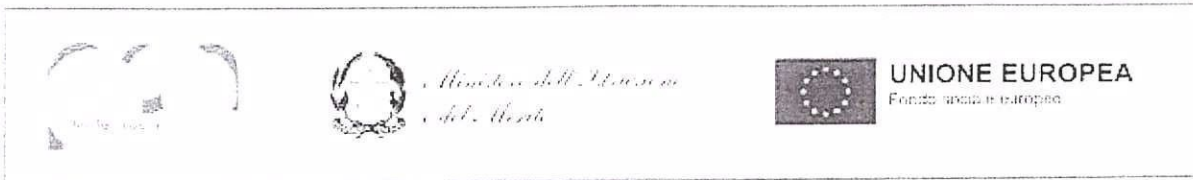 Ministero dell'Istruzione
e del Merito
UNIONE EUROPEA
Fondo sociale europeo